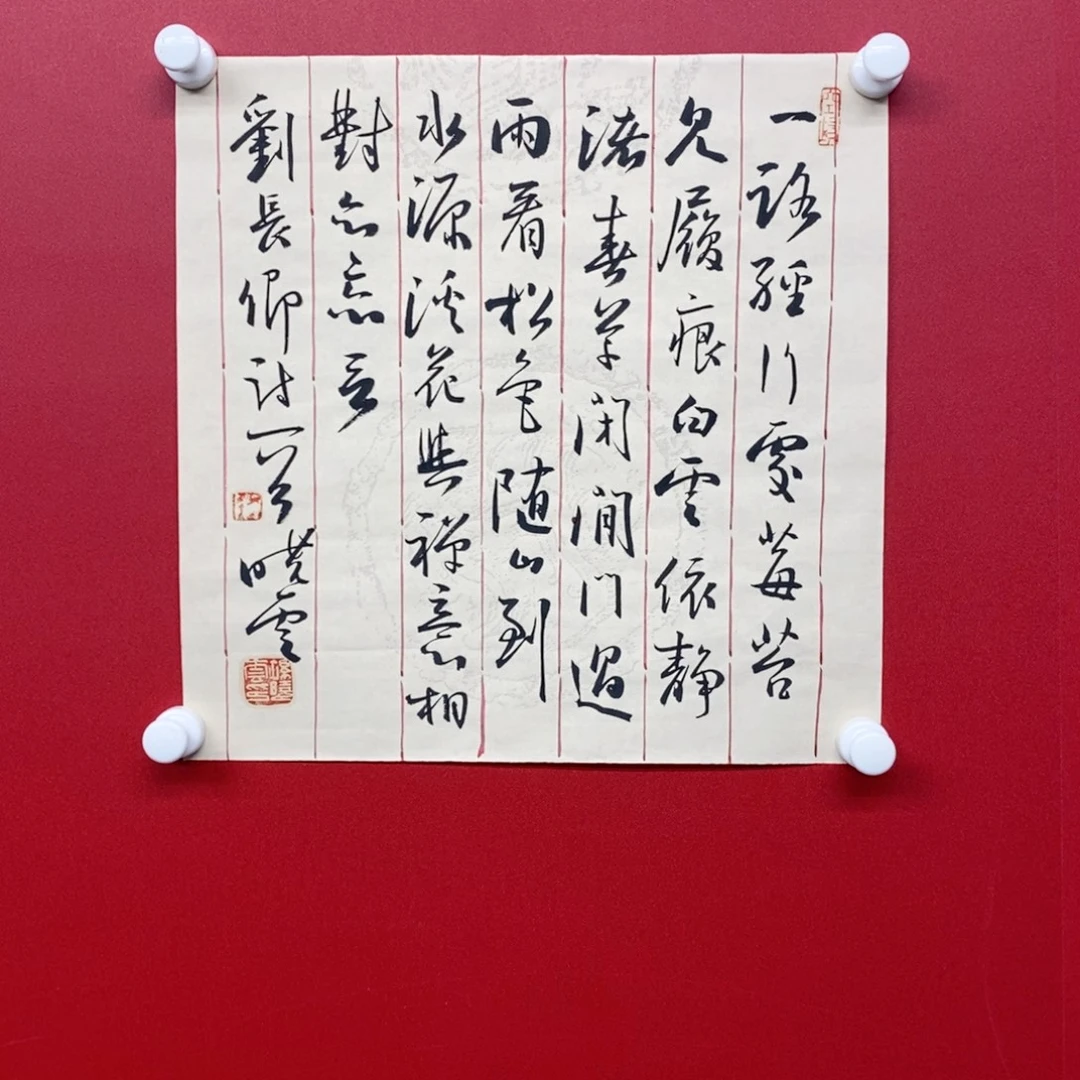 一路經行處莓苔
見履痕白雲依静
渚春草閉閒門過
雨看松色随山到
水源溪花與禪意相
對亦忘言
劉長卿詩一首 曉雲